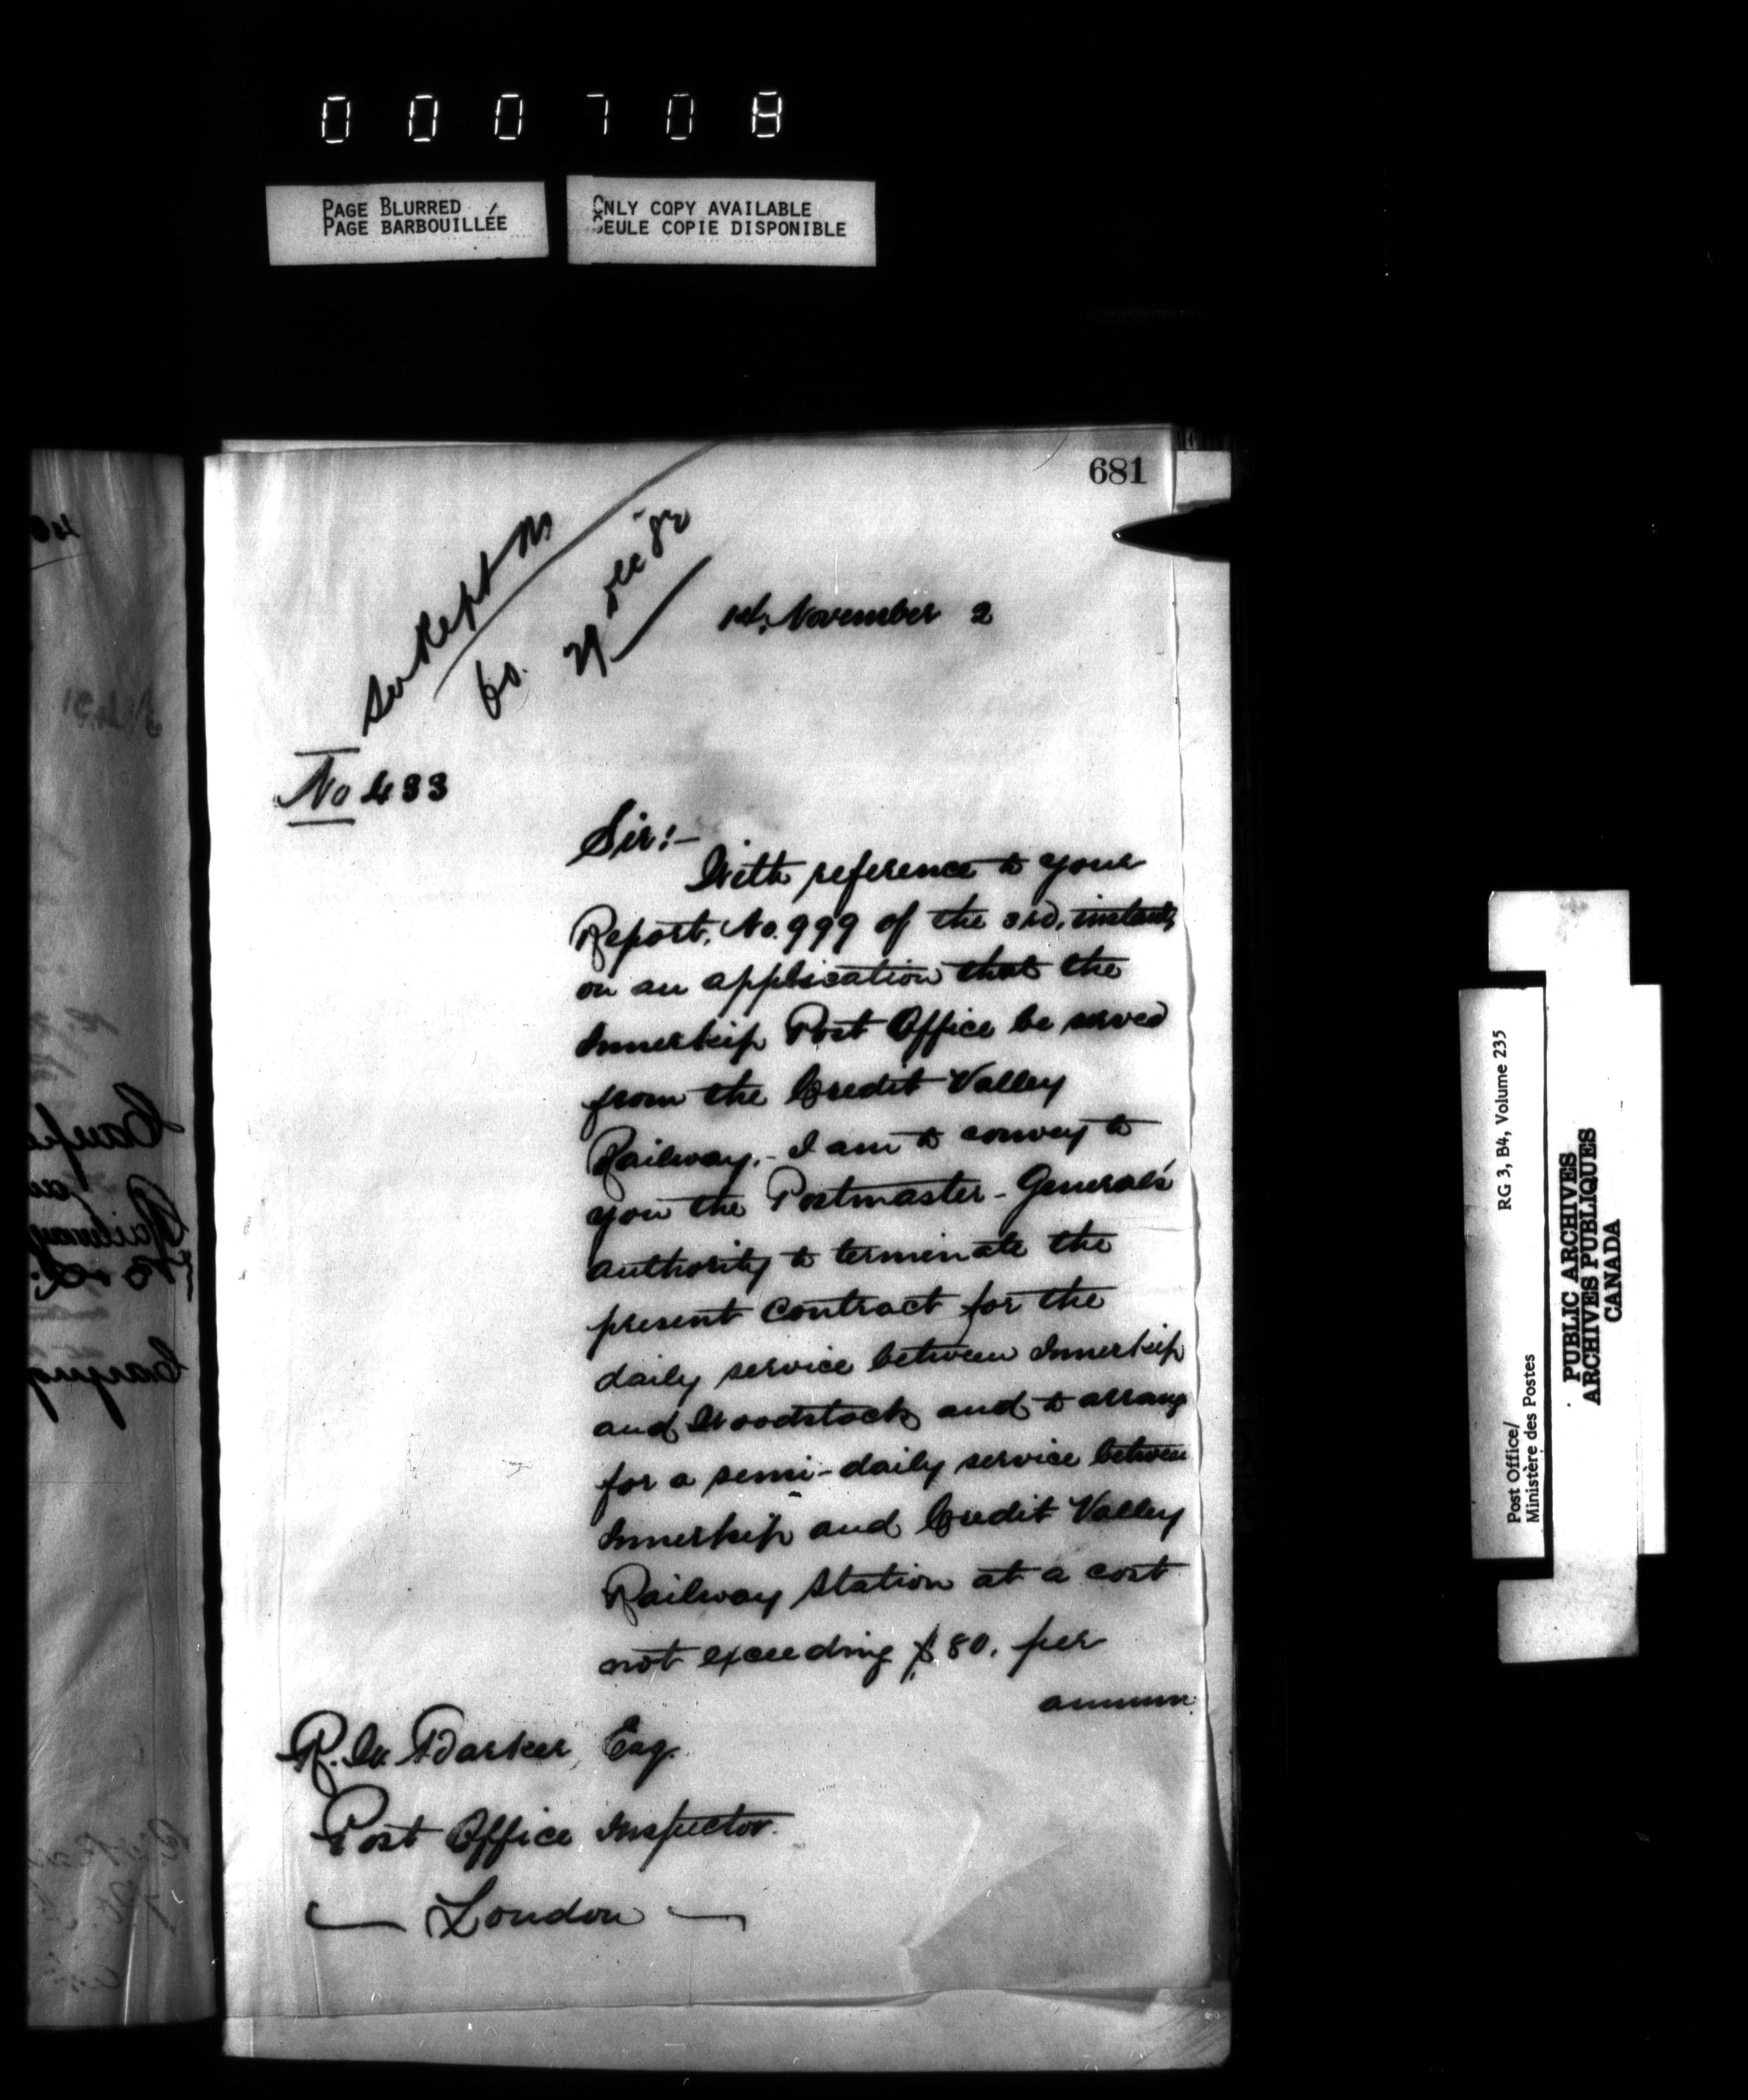 000708
PAGE BLURRED
PAGE BARBOUILLÉE
ONLY COPY AVAILABLE
SEULE COPIE DISPONIBLE
681
See Rept No
60. 27 Dec 82
1st. November 2
No 433
Sir:-
With reference to your
Report, No. 999 of the 3rd, instant,
on an application that the
Innerkip Post Office be served
from the Credit Valley
Railway,- I am to convey to
you the Postmaster-General's
authority to terminate the
present contract for the
daily service between Innerkip
and Woodstock and to arrange
for a semi-daily service between
Innerkip and Credit Valley
Railway Station at a cost
not exceeding $80. per
annum.
R. W. Barker, Esq.
Post Office Inspector.
London
Post Office/
Ministère des Postes
RG 3, B4, Volume 235
PUBLIC ARCHIVES
ARCHIVES PUBLIQUES
CANADA